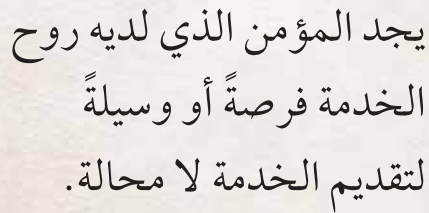 يجد المؤمن الذي لديه روح
الخدمة فرصةً أو وسيلةً
لتقديم الخدمة لا محالة.